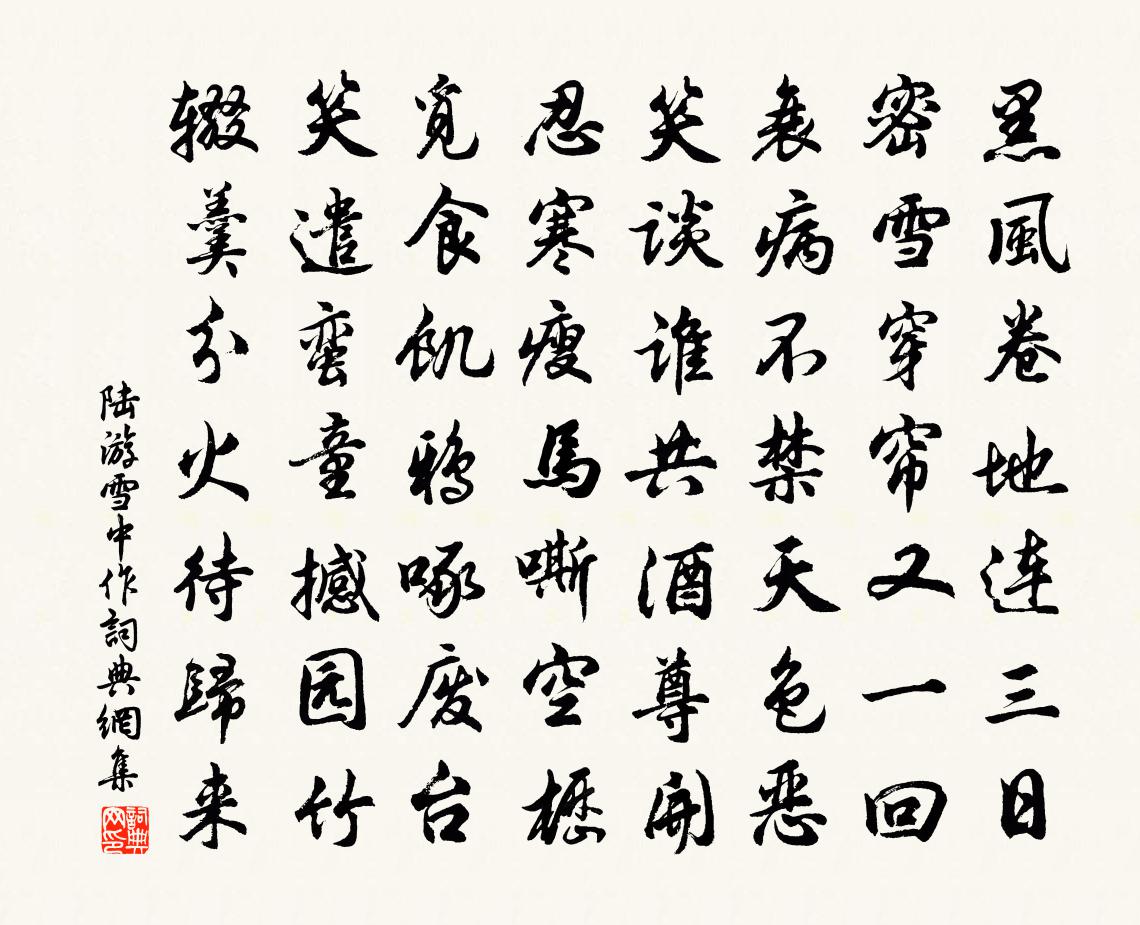 黑風卷地连三日
密雪穿帘又一回
衰病不禁天色恶
笑谈谁共酒尊開
忍寒瘦馬嘶空枥
觅食饥鸦啄废台
笑遣蛮童撼园竹
辍羹分火待歸来
陆游雪中作詞典網集
詞典网印